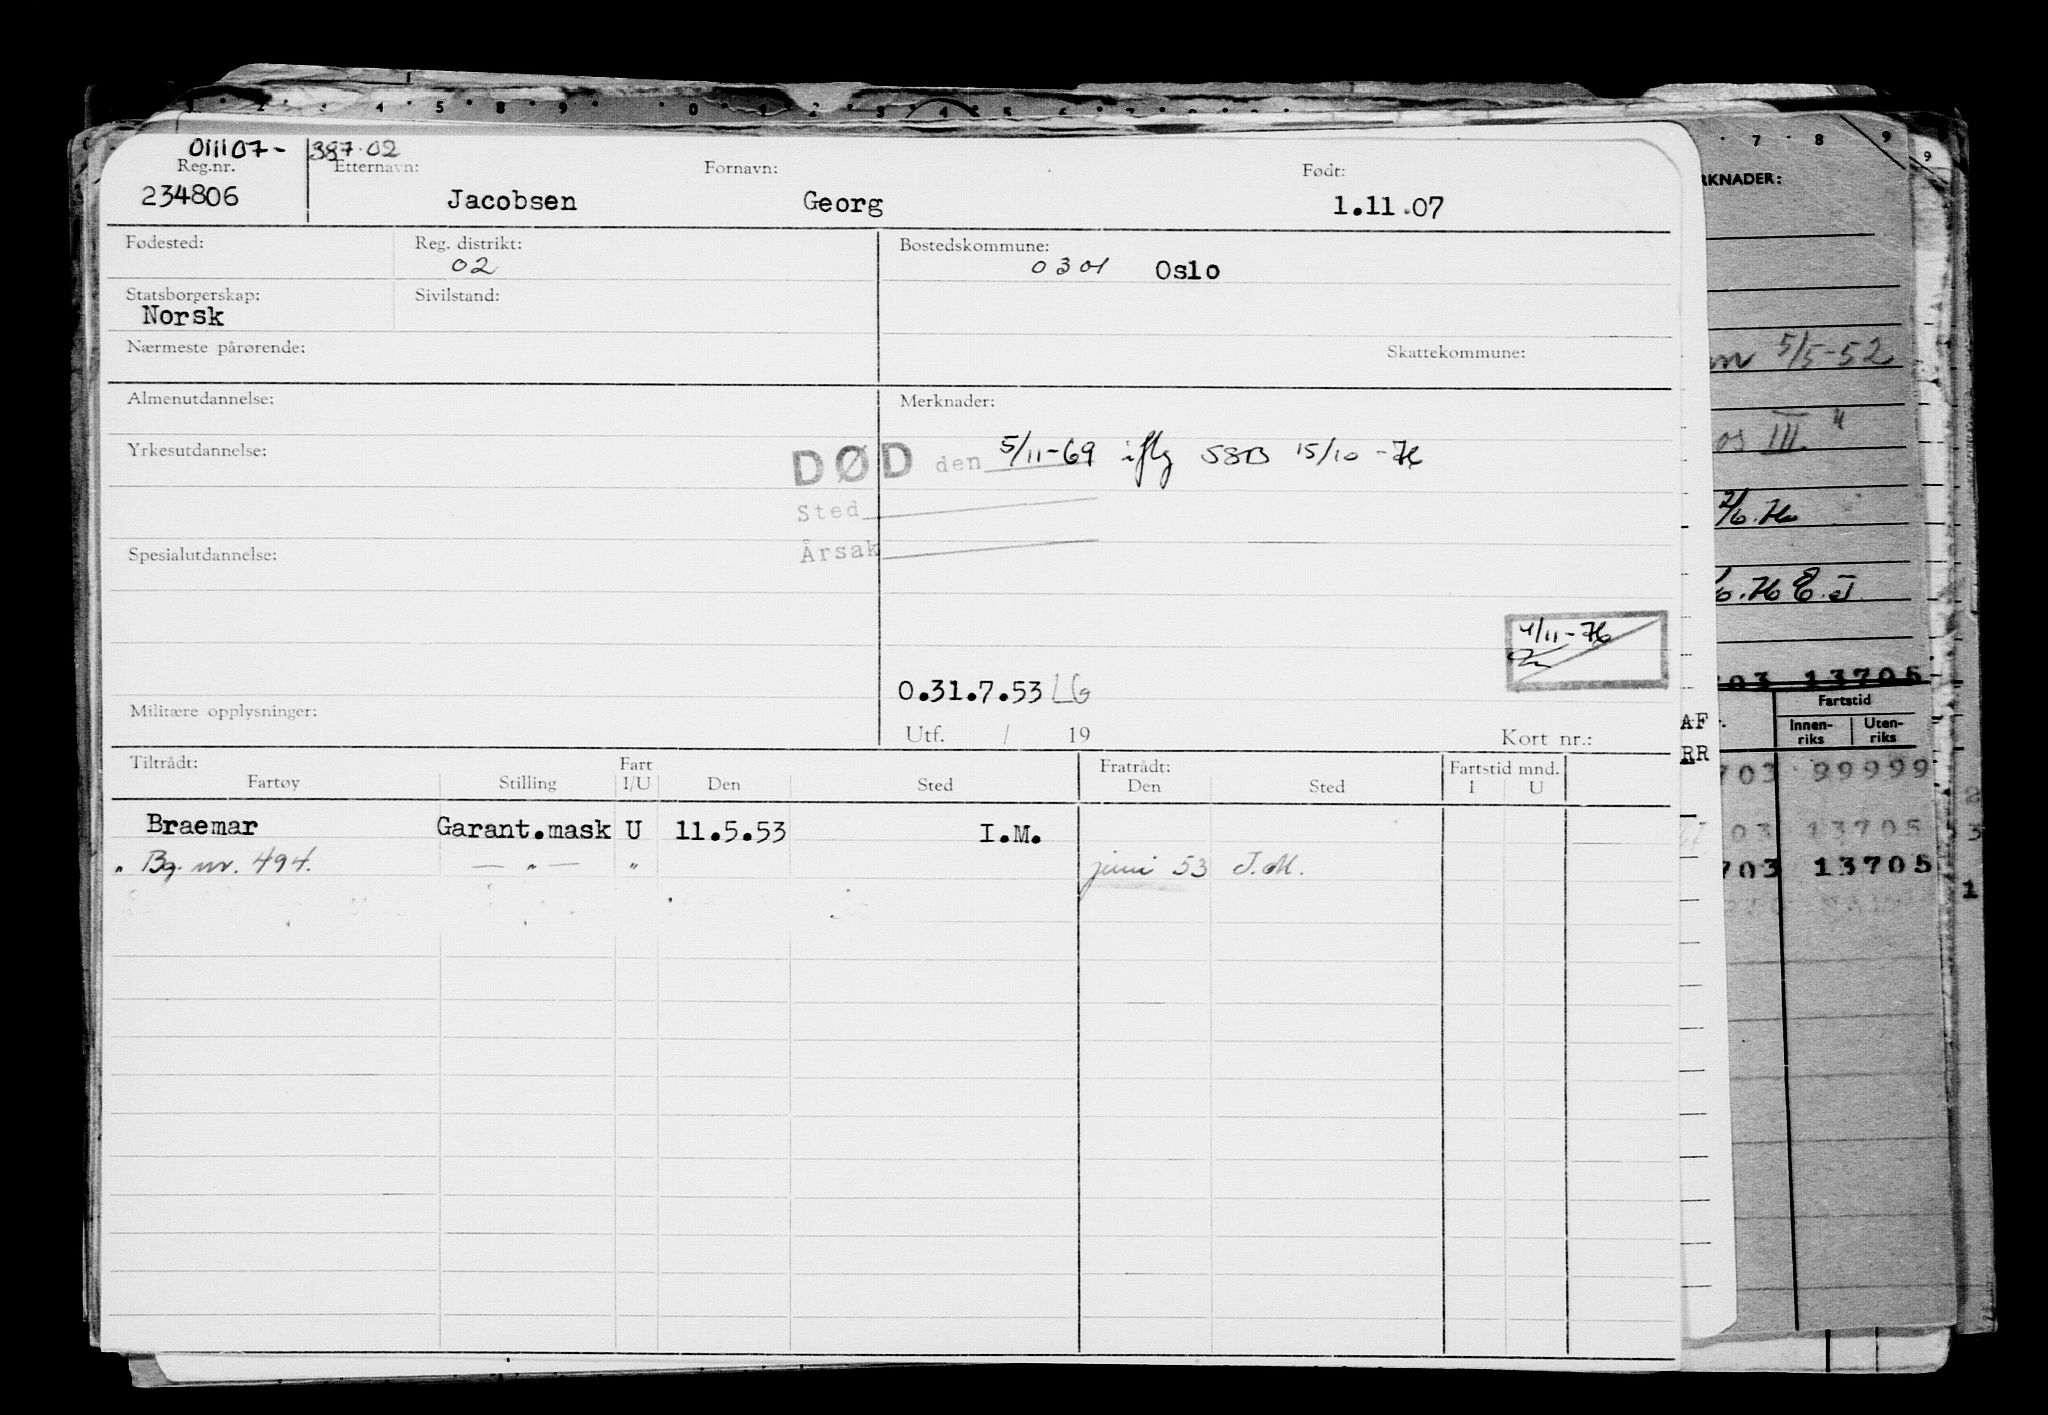 1 · 2 · 3 · 4 · 5 · 8 · 9 · 0 · 1 · 2 · 3 · 4 · 5 · 6 · 7
011107- 387.02
Reg.nr. Etternavn: Fornavn: Født:
234806 Jacobsen Georg 1.11.07
Fødested: Reg. distrikt: Bostedskommune:
02 0301 Oslo
Statsborgerskap: Sivilstand:
Norsk
Nærmeste pårørende: Skattekommune:
Almenutdannelse: Merknader:
Yrkesutdannelse:
DØD den 5/11-69 iflg SSB 15/10-76
Sted
Årsak
Spesialutdannelse:
4/11-76
0.31.7.53 LG
Militære opplysninger: Utf. / 19 Kort nr.:
Tiltrådt: Fart Fratrådt: Fartstid mnd.
Fartøy Stilling I/U Den Sted Den Sted I U
Braemar Garant.mask U 11.5.53 I.M.
" Bg. nr. 494. — " — " juni 53 I.M.
7 8 9 9
RKNADER:
5/5-52
os III. "
2/6.76
/6.76 E.J.
703 13705
AF. Fartstid
RR Innen-riks Uten-riks
703 99999
2
03 13705 3
703 13705
1